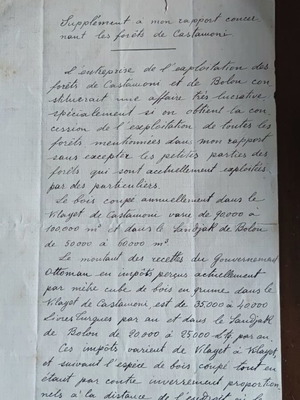 Supplément à mon rapport concer
nant les forêts de Castamoni
L'entreprise de l'exploitation des
forêts de Castamoni et de Bolou con
stituerait une affaire très lucrative
spécialement si on obtient la con
cession de l'exploitation de toutes les
forêts mentionnées dans mon rapport
sans excepter les petites parties des
forêts qui sont actuellement exploitées
par des particuliers.
Le bois coupé annuellement dans le
Vilayet de Castamoni varie de 90000 à
100,000 m³ et dans le Sandjak de Bolou
de 50000 à 60000 m³
Le montant des recettes du Gouvernement
Ottoman en impôts perçus actuellement
par mètre cube de bois en grume dans le
Vilayet de Castamoni, est de 35,000 à 40000
Livres Turques par an et dans le Sandjak
de Bolou de 20,000 à 25000 Ltq par an.
Ces impôts varient de Vilayet à Vilayet
et suivant l'espèce de bois coupé tout en
étant par contre inversement proportion
nels à la distance de l'endroit où le